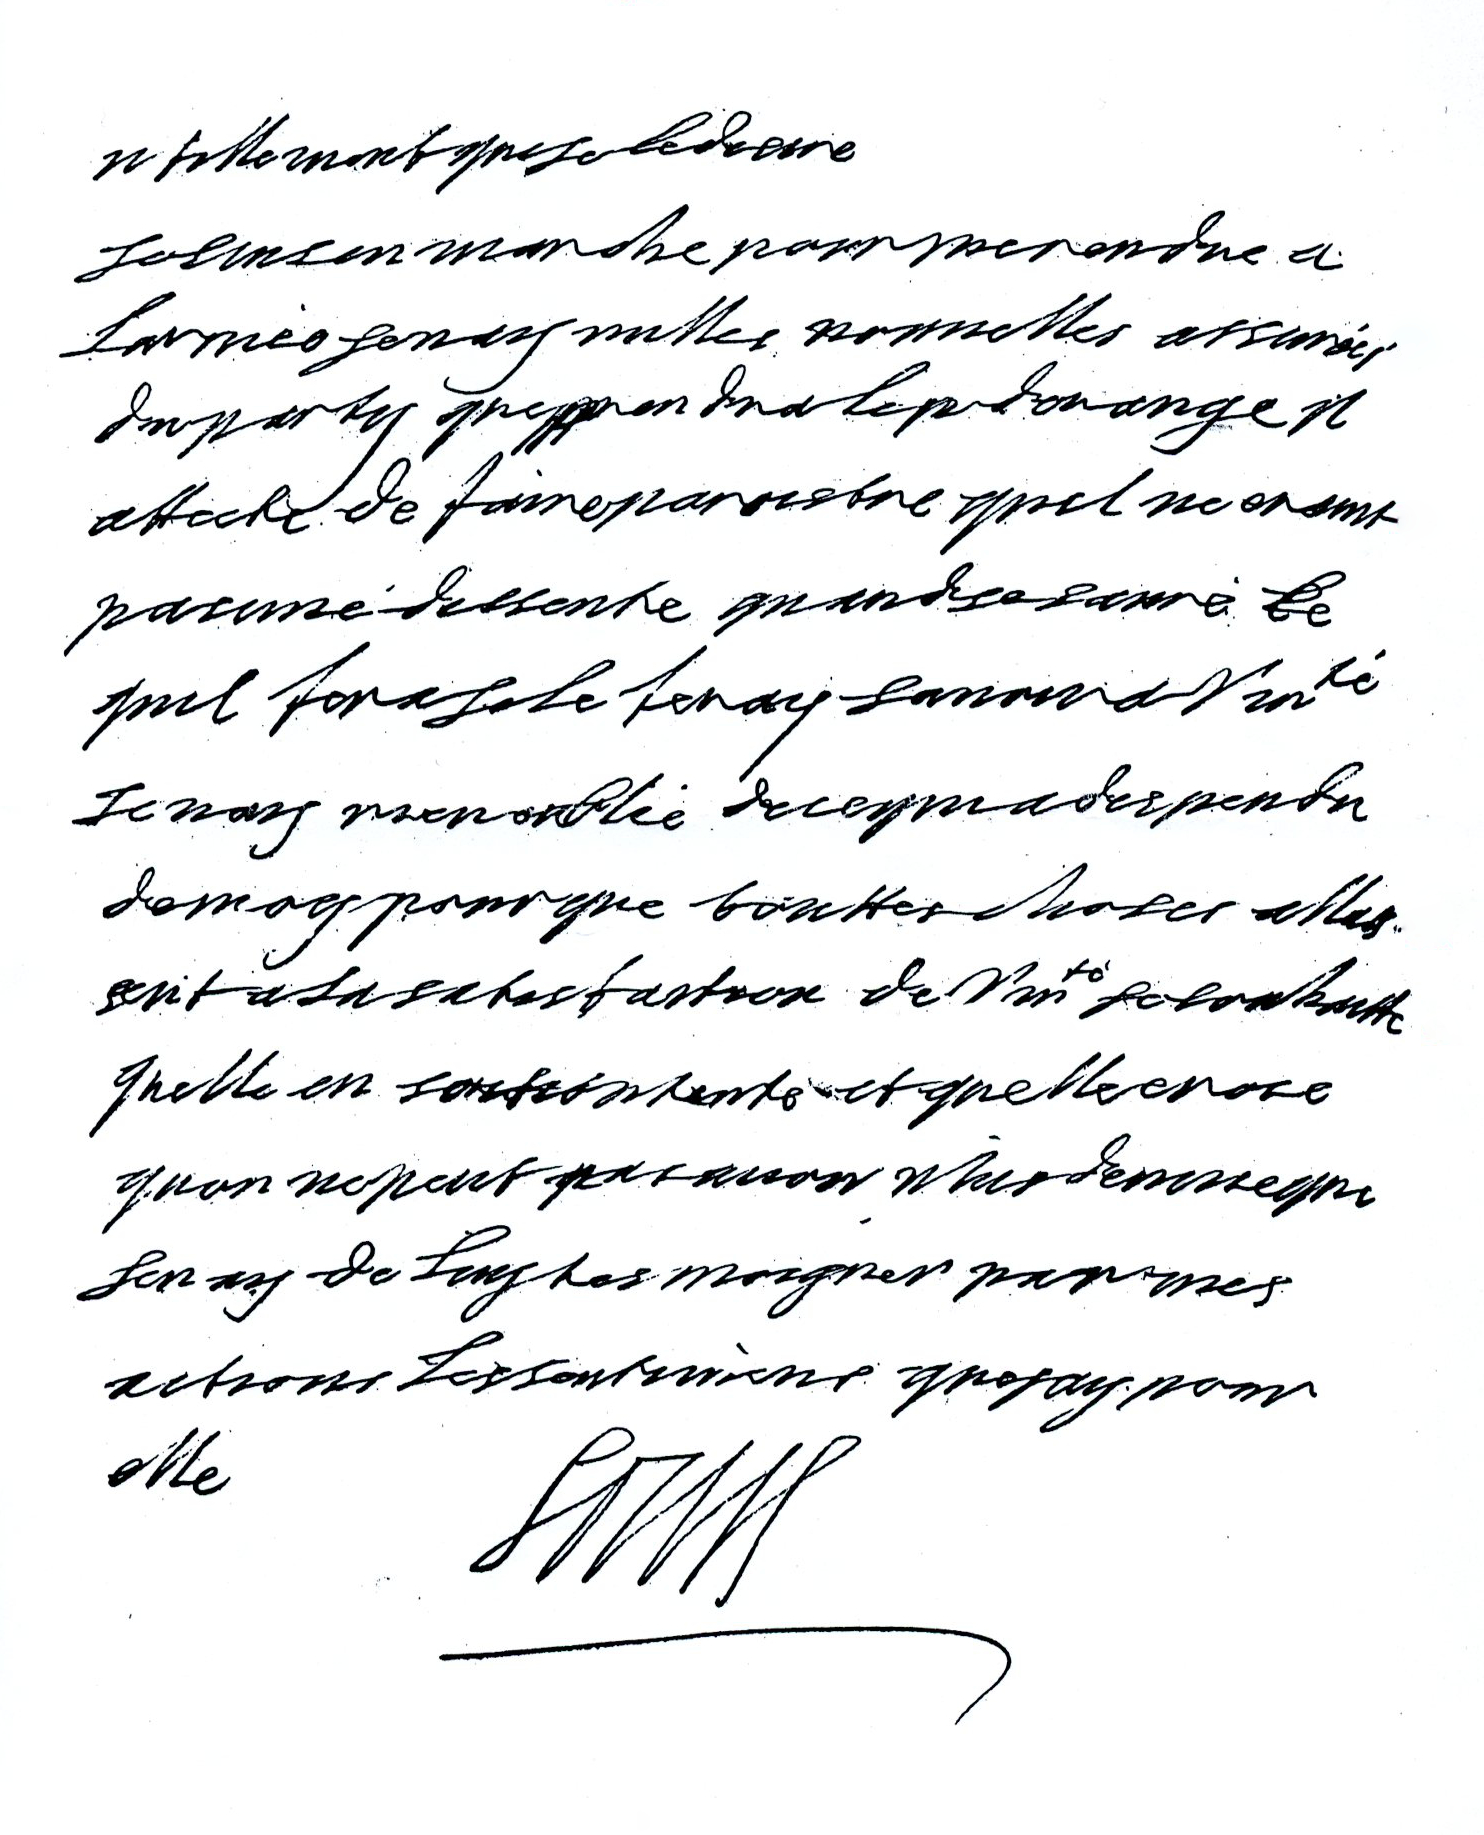 utillement que je le desire
je suis en marche pour me rendre a
l'armée je nay nulles nouvelles assurées
du party que prendra le p dorange il
affecte de faire paroistre quil ne craint
pas une dessente quand je sauré ce
quil fera je le feray sauoir a V mté
je nay rien oublié de ce qui a despendu
de moy pour que touttes choses allas
sent a la satisfaction de V mté je souhaitte
quelle en soit contente et quelle croie
quon ne peut pas auoir plus denvie que
jen ay de luy tesmoigner par mes
actions les sentimens que jay pour
elle
Louis